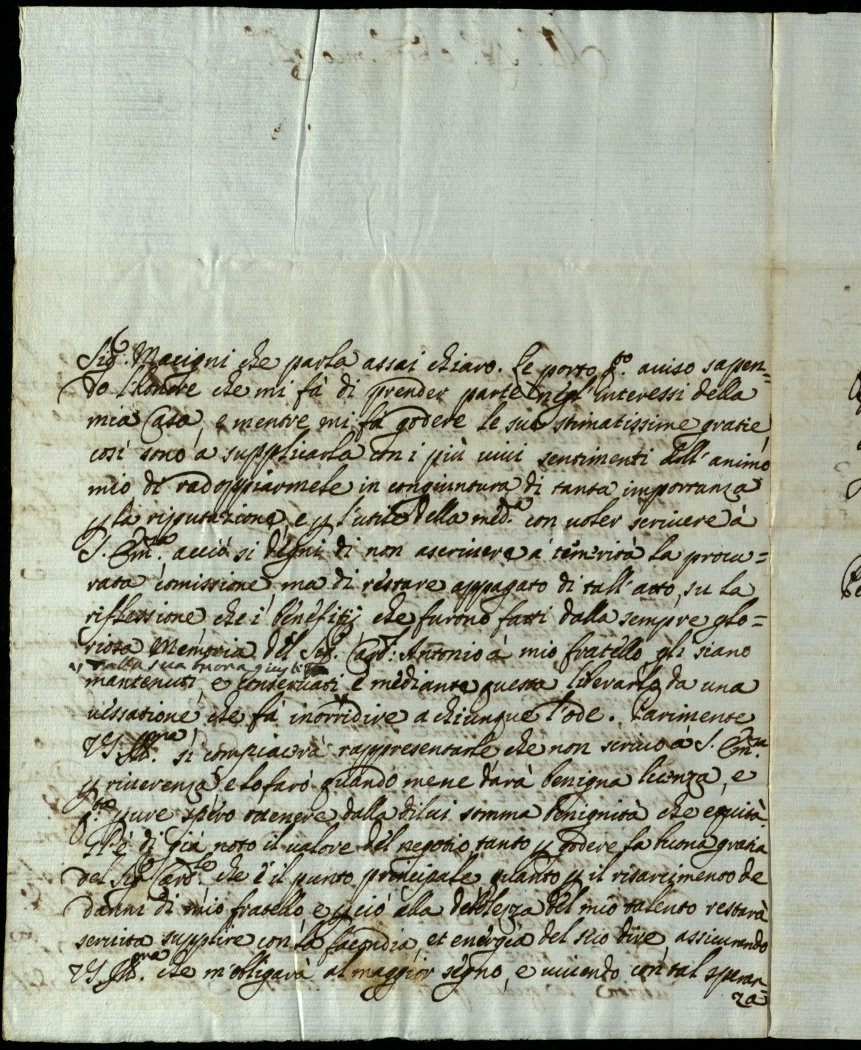 Sigr. Macigni che parla assai chiaro. Le porto qto. aviso sapen=
do l'honore che mi fà di prender parte negl' interessi della
mia Casa, e mentre mi fà godere le sue stimatissime gratie,
così sono à supplicarla con i più vivi sentimenti dell' animo
mio di radoppiarmele in congiuntura di tanta importanza
p la riputazione, e p l'utile della meda. con voler scrivere à
S. Emza. acciò si degni di non ascrivere à temerità la procu=
rata comissione, ma di restare appagato di tall' atto, su la
riflessione che i benefitij che furono fatti dalla sempre glo=
riosa Memoria del Sigr. Cardl. Antonio à mio fratello gli siano
nella sua buona giustitia
mantenuti, e conservati e mediante questa liberarlo da una
vessatione, che fà inorridire a chiunque l'ode. Parimente
VS Illma. si compiacerà rappresentarle che non scrivo à S. Emza.
p riverenza, e lo farò quando me ne darà benigna licenza, e
qto. pure spero ottenere dalla di lui somma benignità che equità
Gl'è di già noto il valore del negotio tanto p godere la buona gratia
del Sigr. Cardle. che è il punto principale quanto p il risarcimento de
danni di mio fratello e p ciò alla debolezza del mio talento restarà
servita supplire con la facondia, et energia del suo dire, assicurando
VS Illma. che m'obligarà al maggior segno, e vivendo con tal speran
za